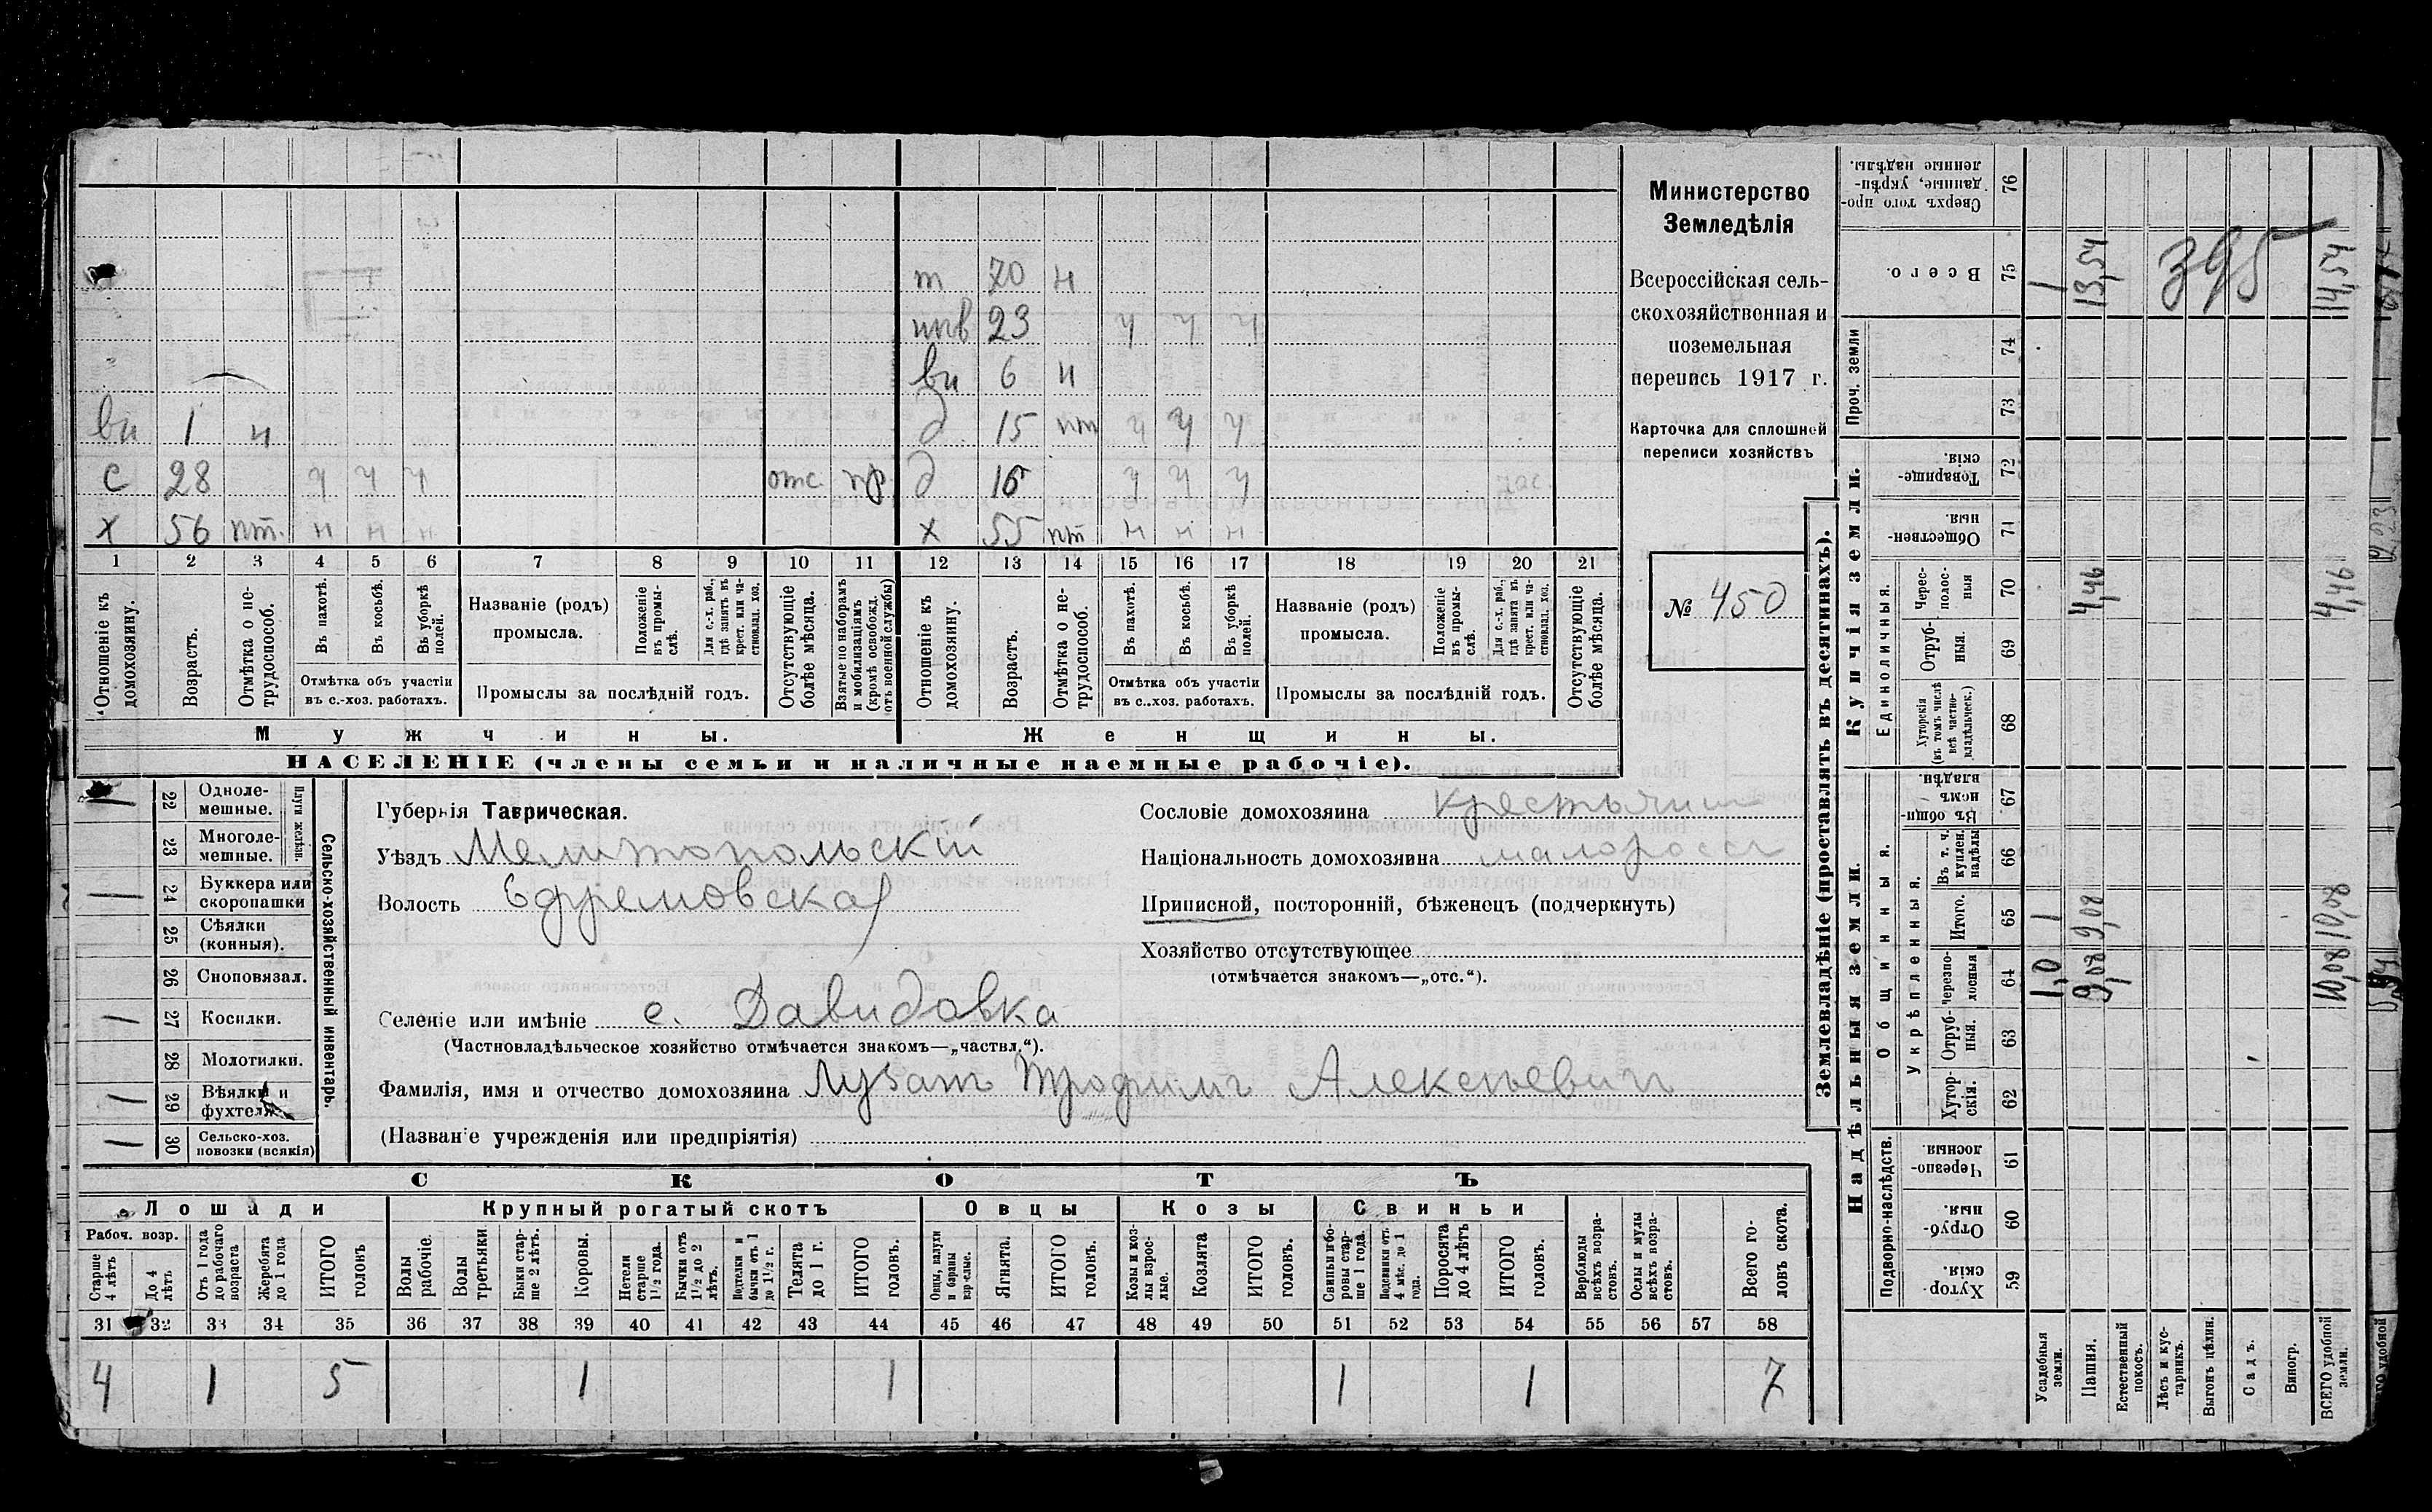 т 70 н
нпв 23 ч ч ч
вн 6 н
вн 1 н д 15 пт ч ч ч
с 28 ч ч ч отс. пр. д 16 ч ч ч
х 56 пт. н н н х 55 пт н н н
1 2 3 4 5 6 7 8 9 10 11 12 13 14 15 16 17 18 19 20 21
Отношеніе къ домохозяину.
Возрастъ.
Отмѣтка о не-трудоспособ.
Въ пахотѣ.
Въ косьбѣ.
Въ уборкѣ полей.
Отмѣтка объ участіи
въ с.-хоз. работахъ.
Названіе (родъ)
промысла.
Положеніе въ промы-слѣ.
Для с.-х. раб., гдѣ занятъ въ крест. или ча-стновлад. хоз.
Промыслы за послѣдній годъ.
Отсутствующіе болѣе мѣсяца.
Взятые по наборамъ и мобилизаціямъ (кромѣ освобожд. отъ военной службы)
Отношеніе къ домохозяину.
Возрастъ.
Отмѣтка о не-трудоспособ.
Въ пахотѣ.
Въ косьбѣ.
Въ уборкѣ полей.
Отмѣтка объ участіи
въ с.-хоз. работахъ.
Названіе (родъ)
промысла.
Положеніе въ промы-слѣ.
Для с.-х. раб., гдѣ занята въ крест. или ча-стновлад. хоз.
Промыслы за послѣдній годъ.
Отсутствующіе болѣе мѣсяца.
Мужчины. Женщины.
НАСЕЛЕНІЕ (члены семьи и наличные наемные рабочіе).
Министерство
Земледѣлія
Всероссійская сель-
скохозяйственная и
поземельная
перепись 1917 г.
Карточка для сплошной
переписи хозяйствъ
№ 450
22 Одноле-мешные.
Плуги желѣзн.
23 Многоле-мешные.
24 Буккера или скоропашки
25 Сѣялки (конныя).
26 Сноповязал.
27 Косилки.
28 Молотилки.
29 Вѣялки и фухтеля.
30 Сельско-хоз. повозки (всякія)
Сельско-хозяйственный инвентарь.
Губернія Таврическая.
Уѣздъ Мелитопольскій
Волость Ефремовская
Селеніе или имѣніе с. Давидовка
(Частновладѣльческое хозяйство отмѣчается знакомъ—„частвл.“).
Фамилія, имя и отчество домохозяина Лузанъ Трофимъ Алексѣевичъ
(Названіе учрежденія или предпріятія)
Сословіе домохозяина крестьянинъ
Національность домохозяина малороссъ
Приписной, посторонній, бѣженецъ (подчеркнуть)
Хозяйство отсутствующее
(отмѣчается знакомъ—„отс.“).
СКОТЪ
Лошади Крупный рогатый скотъ Овцы Козы Свиньи
Рабоч. возр.
Старше 4 лѣтъ
До 4 лѣтъ
Отъ 1 года до рабочаго возраста
Жеребята до 1 года
ИТОГО головъ
Волы рабочіе.
Волы третьяки
Быки стар-ше 2 лѣтъ.
Коровы.
Нетели старше 1½ года.
Бычки отъ 1½ до 2 лѣтъ.
Подтелки и бычки отъ 1 до 1½ г.
Телята до 1 г.
ИТОГО головъ.
Овцы, валухи и бараны взрослые.
Ягнята.
ИТОГО головъ.
Козы и коз-лы взрос-лые.
Козлята
ИТОГО головъ.
Свиньи и бо-ровы стар-ше 1 года.
Подсвинки отъ 4 мѣс. до 1 года.
Поросята до 4 лѣтъ
ИТОГО головъ.
Верблюды всѣхъ возра-стовъ.
Ослы и мулы всѣхъ возра-стовъ.
Всего го-ловъ скота.
31 32 33 34 35 36 37 38 39 40 41 42 43 44 45 46 47 48 49 50 51 52 53 54 55 56 57 58
4 1 5 1 1 1 1 7
Землевладѣніе (проставлять въ десятинахъ).
Надѣльныя земли. Купчія земли. Проч. земли
Подворно-наслѣдств. Общинныя. Единоличныя.
Укрѣпленныя.
59 Хутор-скія.
60 Отруб-ныя.
61 Черезпо-лосныя.
62 Хутор-скія.
63 Отруб-ныя.
64 Черезпо-лосныя
65 Итого.
66 Въ т. ч. куплен. надѣлы
67 Въ общин-номъ владѣн.
68 Хуторскія (въ томъ числѣ всѣ частно-владѣльческ.)
69 Отруб-ныя.
70 Черес-полос-ныя
71 Обществен-ныя.
72 Товарище-скія.
73
74
75 Всего.
76 Сверхъ того про-данные, укрѣп-ленные надѣлы.
Усадебныя земли. 1,0 1 1
Пашня. 9,08 9,08 4,46 13,54
Естественный покосъ.
Лѣсъ и кус-тарникъ.
Выгонъ цѣлин.
Садъ.
Виногр.
ВСЕГО удобной земли. 10,08 10,08 4,46 14,54
395